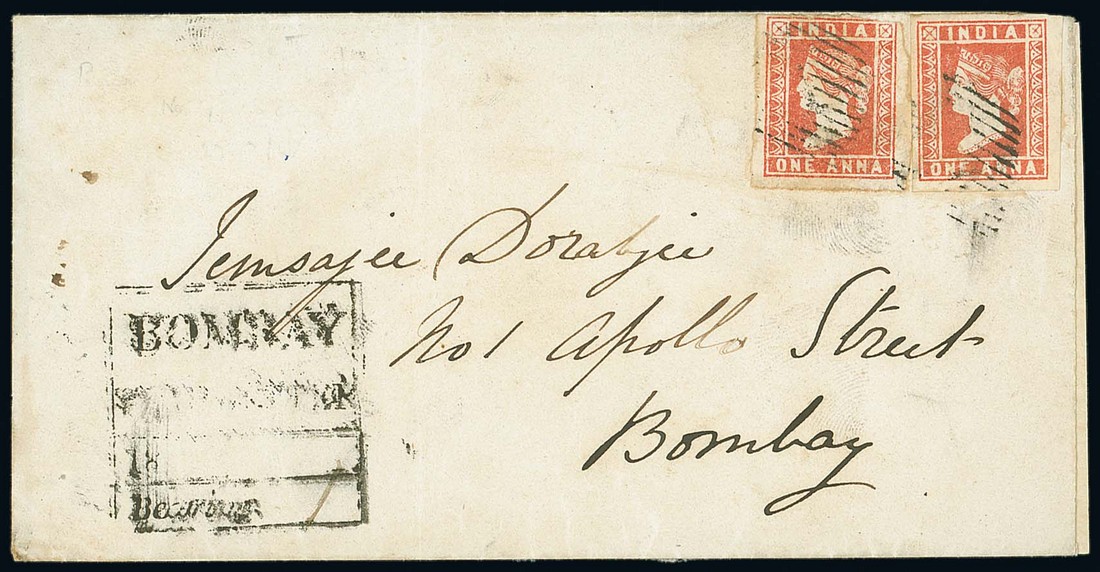 INDIA
ONE ANNA
INDIA
ONE ANNA
Jemsajee Dorabjee
No 1 Apollo Street
Bombay
BOMBAY
18
Bearing